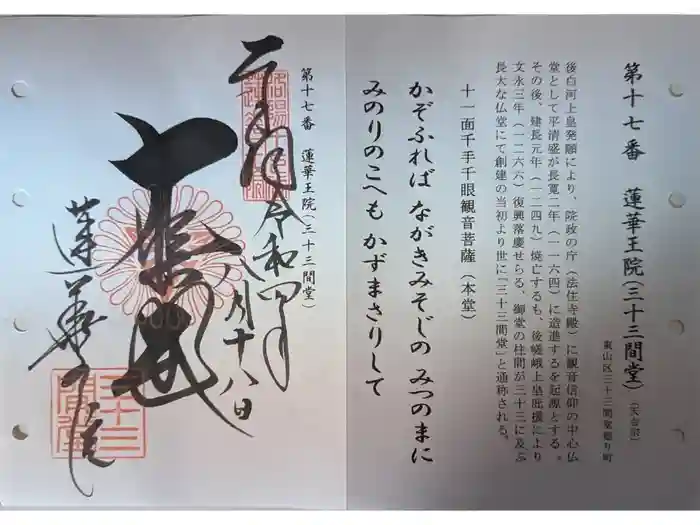 第十七番 蓮華王院(三十三間堂)(天台宗)
東山区三十三間堂廻り町
後白河上皇発願により、院政の庁(法住寺殿)に観音信仰の中心仏
堂として平清盛が長寛二年(一一六四)に造進するを起源とする。
その後、建長元年(一二四九)焼亡するも、後嵯峨上皇庇護により
文永三年(一二六六)復興落慶せらる、御堂の柱間が三十三に及ぶ
長大な仏堂にて創建の当初より世に「三十三間堂」と通称される。
十一面千手千眼観音菩薩(本堂)
かぞふれば ながきみそじの みつのまに
みのりのこへも かずまさりして
第十七番 蓮華王院(三十三間堂)
令和四年
八月十八日
蓮華王院
三十三間堂